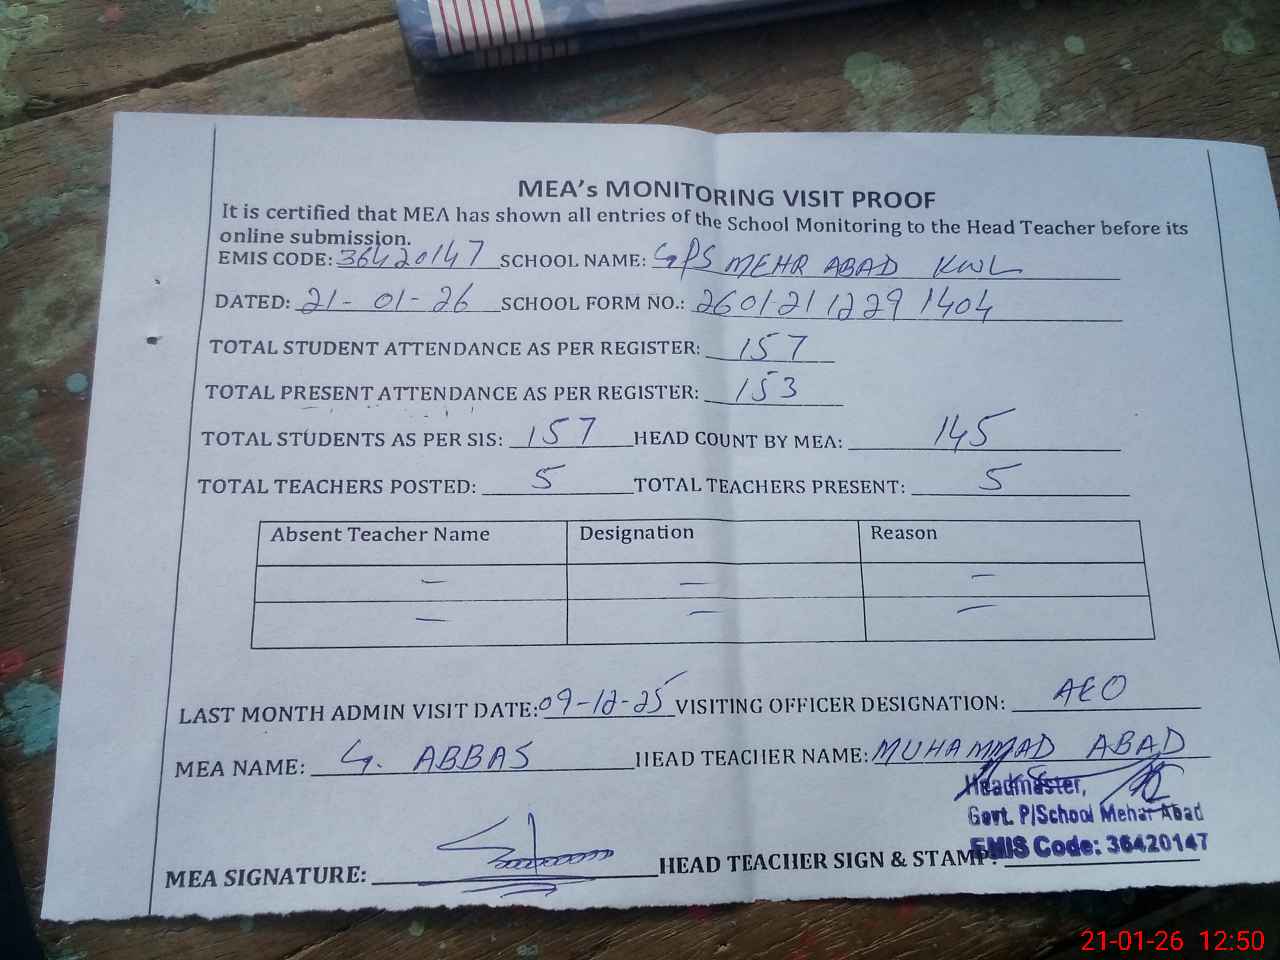 MEA's MONITORING VISIT PROOF
It is certified that MEA has shown all entries of the School Monitoring to the Head Teacher before its
online submission.
EMIS CODE: 36420147 SCHOOL NAME: GPS MEHR ABAD KWL
DATED: 21-01-26 SCHOOL FORM NO.: 2601211229 1404
TOTAL STUDENT ATTENDANCE AS PER REGISTER: 157
TOTAL PRESENT ATTENDANCE AS PER REGISTER: 153
TOTAL STUDENTS AS PER SIS: 157 HEAD COUNT BY MEA: 145
TOTAL TEACHERS POSTED: 5 TOTAL TEACHERS PRESENT: 5
Absent Teacher Name Designation Reason
— — —
— — —
LAST MONTH ADMIN VISIT DATE: 09-12-25 VISITING OFFICER DESIGNATION: AEO
MEA NAME: G. ABBAS HEAD TEACHER NAME: MUHAMMAD ABAD
Headmaster,
Govt. P/School Mehar Abad
EMIS Code: 36420147
MEA SIGNATURE: HEAD TEACHER SIGN & STAMP:
21-01-26 12:50